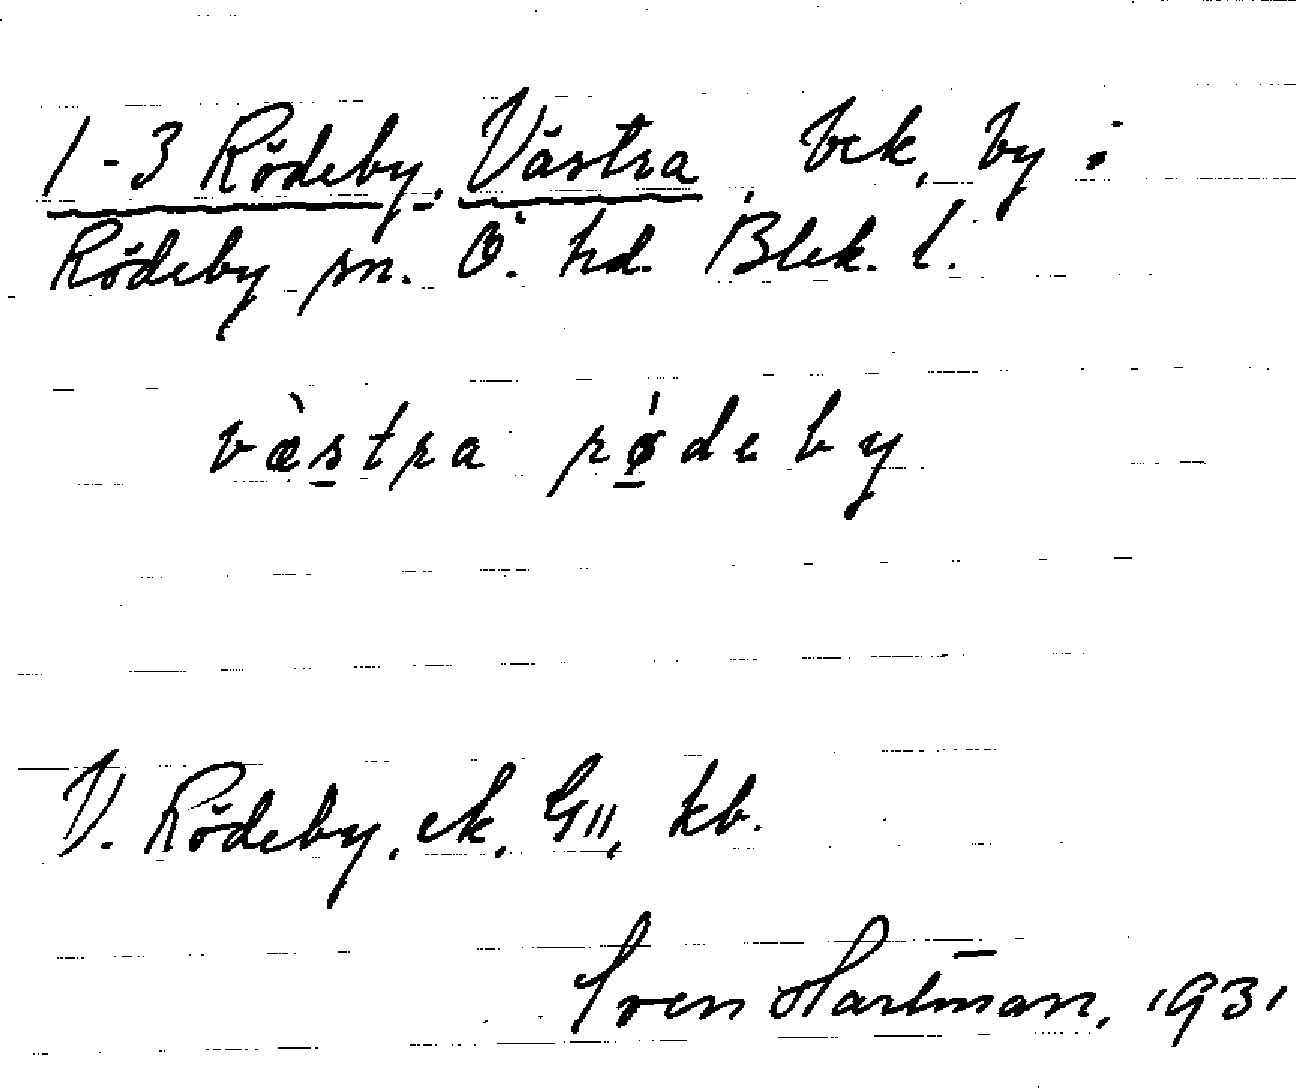 1-3 Rödeby, Västra, bck, by i
Rödeby sn. Ö. hd. Blek. l.
væ̀stra rø̍deby
V. Rödeby, ek. GII, kb.
Sven Hartman, 1931